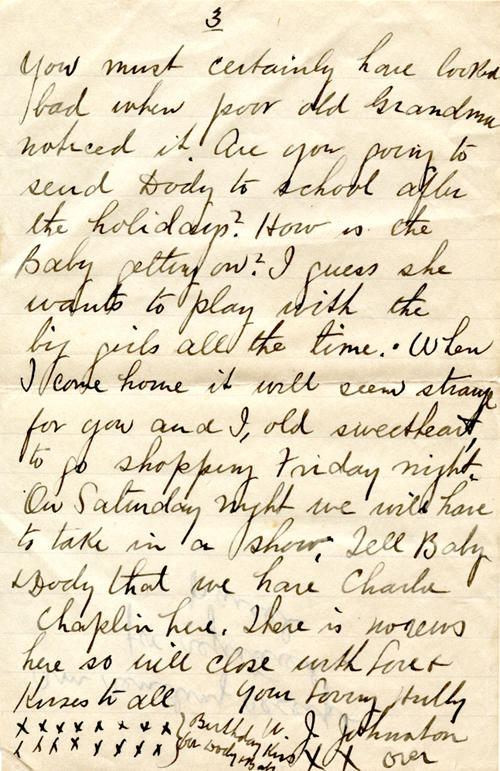 3
You must certainly have looked
bad when poor old Grandma
noticed it. Are you going to
send Dody to school after
the holidays? How is the
Baby getting on? I guess she
wants to play with the
big girls all the time. When
I come home it will seem strange
for you and I, old sweetheart,
to go shopping Friday night.
On Saturday night we will have
to take in a show. Tell Baby
& Dody that we have Charlie
Chaplin here. There is no news
here so will close with Love &
Kisses to all Your loving Hubby
x x x x x x x x x } Birthday W. J. Johnston
x x x x x x x x x } for Dody & Baby Kiss x x over